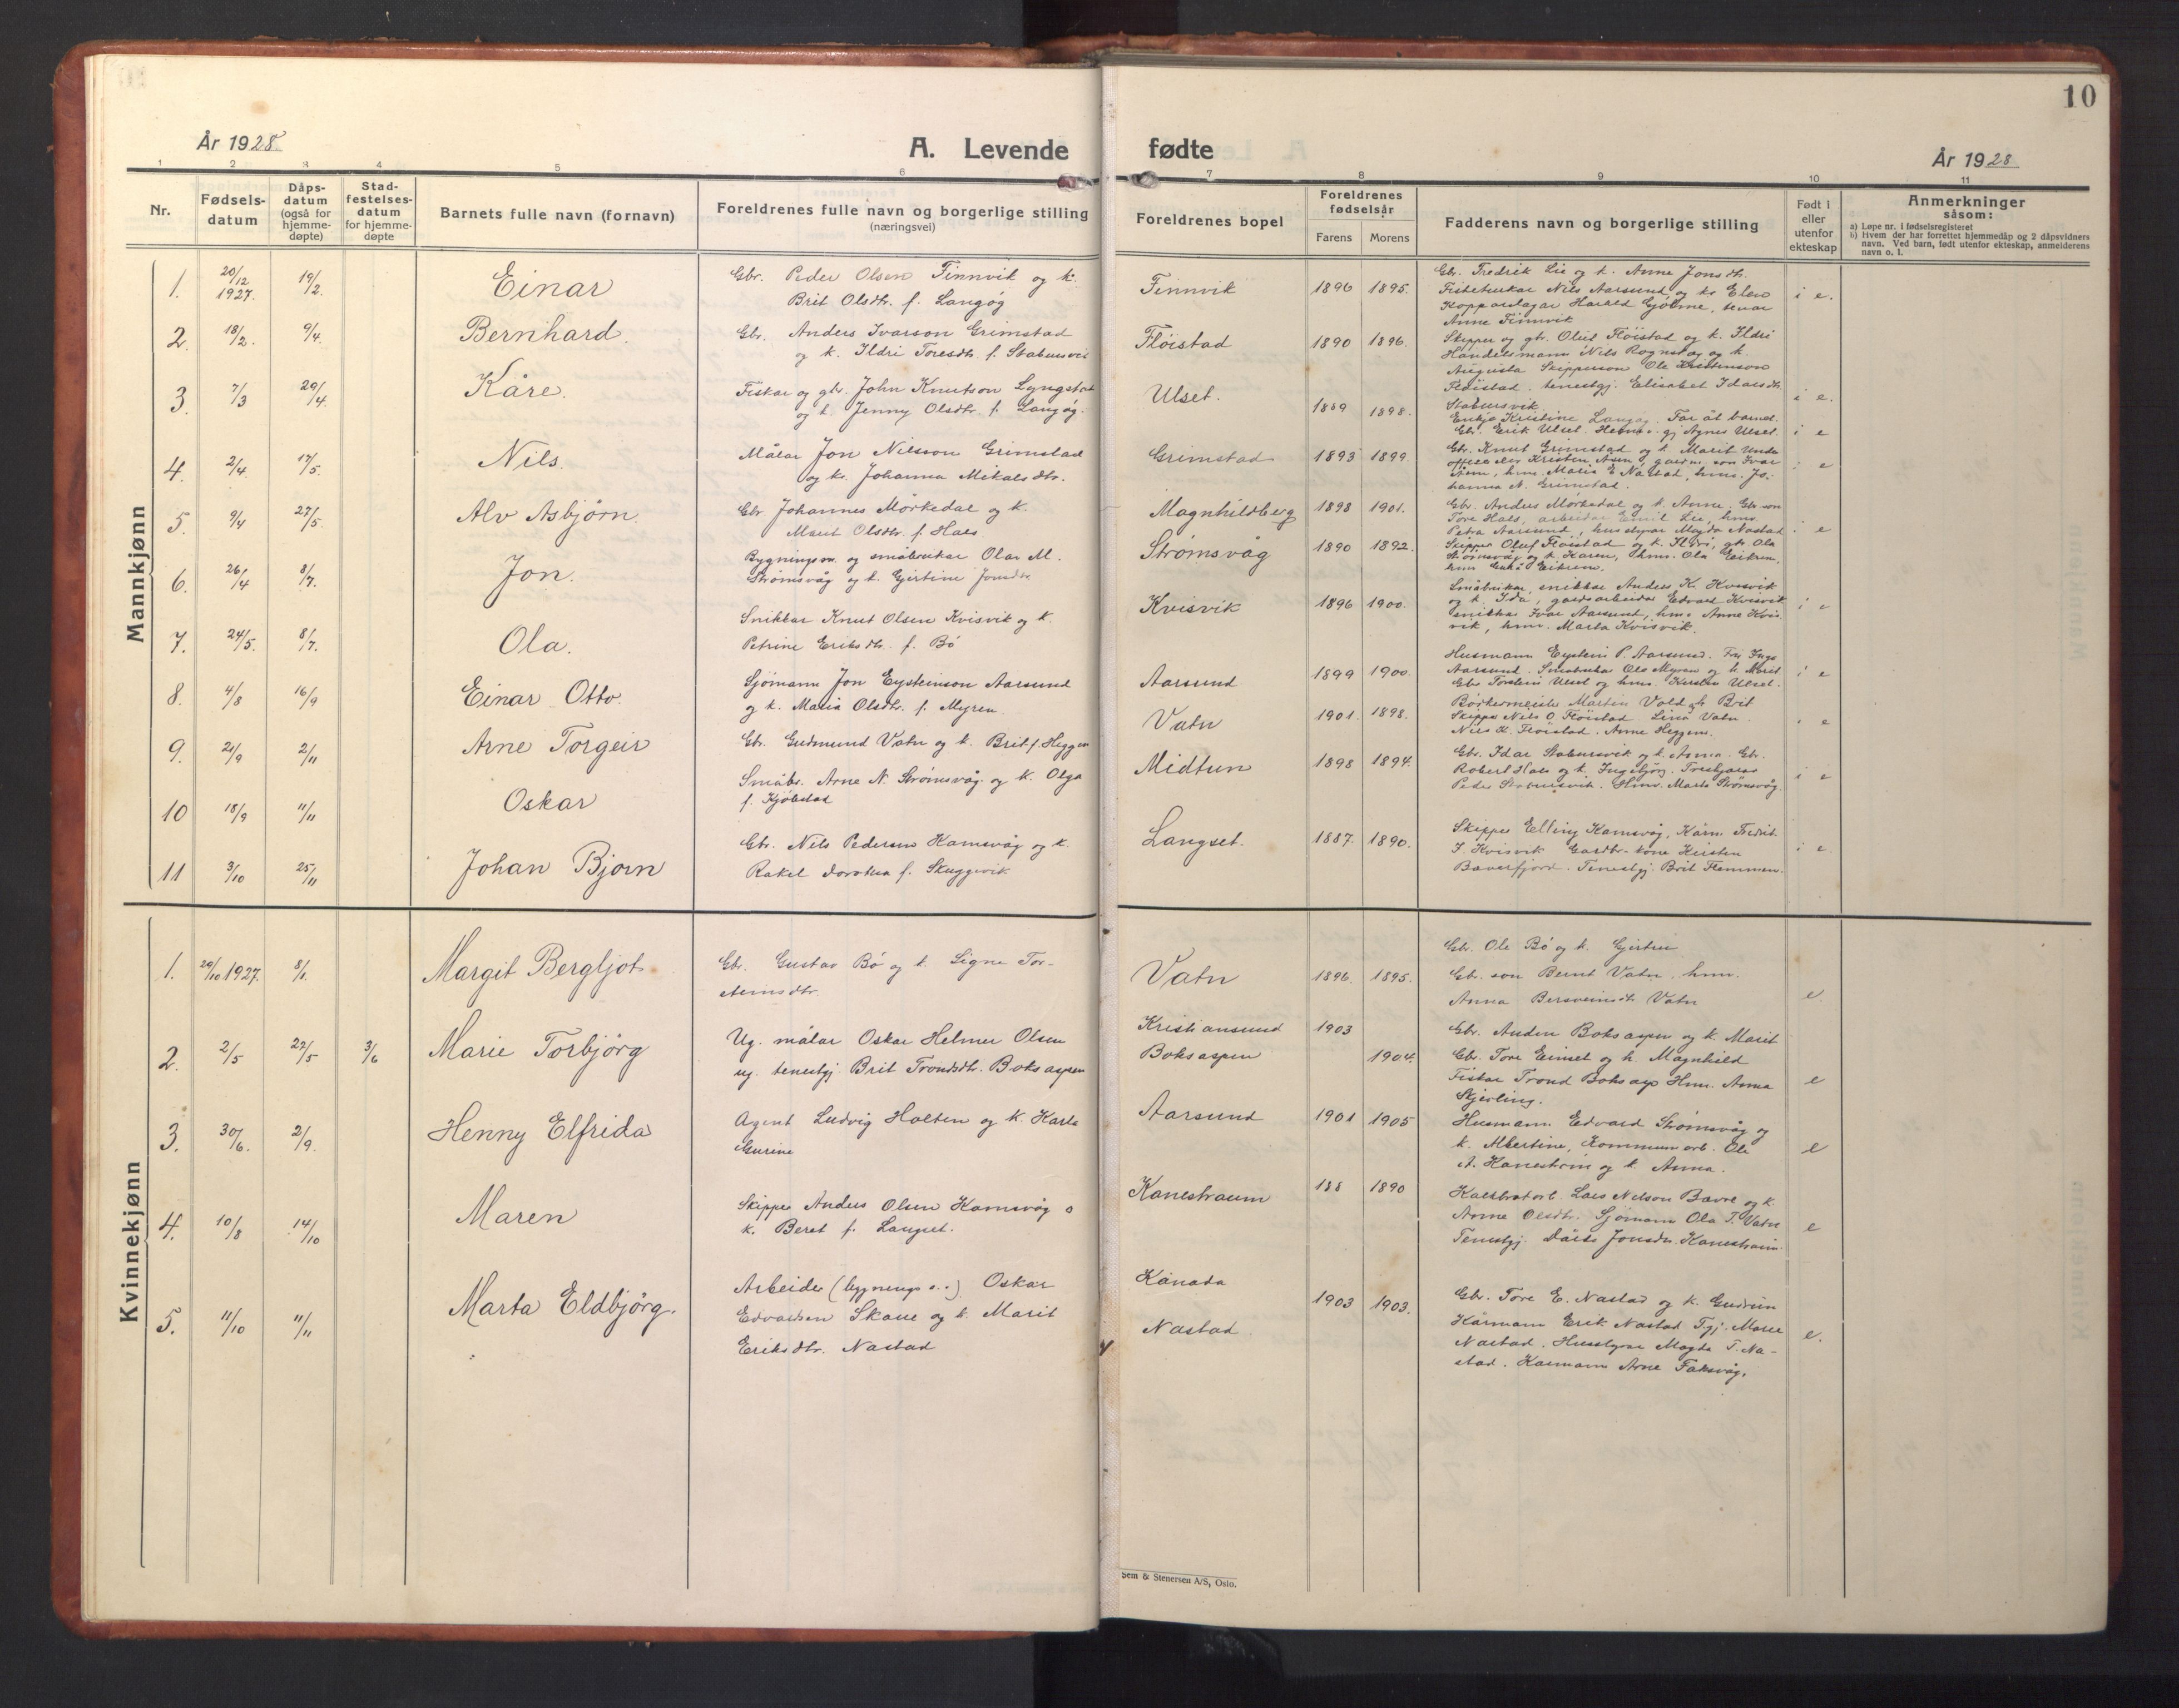 10
År 1928
A. Levende
fødte
År 1928
1 2 3 4 5 6 7 8 9 10 11
Nr.
Fødsels-
datum
Dåps-
datum
(også for
hjemme-
døpte)
Stad-
festelses-
datum
for hjemme-
døpte
Barnets fulle navn (fornavn)
Foreldrenes fulle navn og borgerlige stilling
(næringsvei)
Foreldrenes bopel
Foreldrenes
fødselsår
Farens Morens
Fadderens navn og borgerlige stilling
Født i
eller
utenfor
ekteskap
Anmerkninger
såsom:
a) Løpe nr. i fødselsregisteret
b) Hvem der har forrettet hjemmedåp og 2 dåpsvidners
navn. Ved barn, født utenfor ekteskap, anmelderens
navn o. l.
Mannkjønn
1. 20/12 1927. 19/2. Einar
Gbr. Peder Olsen Finnvik og k.
Brit Olsdtr. f. Langøg
Finnvik 1896 1895.
Gbr. Fredrik Lie og k. Anne Jonsdtr.
Nils Aarsund og k. Elen
Harald Gjølme,
Anne Finnvik
i e.
2. 18/2. 9/4. Bernhard.
Gbr. Anders Ivarson Grimstad
og k. Ildri Toresdtr. f. Stabursvik
Fløistad 1890 1896.
Skipper og gbr. Oluf Fløistad og k. Ildri
Handelsmann Nils Rognskog og k.
Augusta Skipperson Ole Kristenson
Fløistad. tenestgj. Elisabet Idarsdtr.
Stabursvik.
i e.
3. 7/3 29/4. Kåre.
Fiskar og gbr. John Knutson Lyngstad
og k. Jenny Olsdtr. f. Langøg.
Ulset. 1889 1898.
Enkja Kristine Langøg. Far åt barnet.
Gbr. Erik Ulset. gj Agnes Ulset.
i e
4. 2/4 17/5. Nils.
Målar Jon Nilsson Grimstad
og k. Johanna Mikalsdtr.
Grimstad 1893 1899.
Gbr. Knut Grimstad og k. Marit Under
offiser Kristen Asen, gardm. son Ivar
hmv. Maria E Nastad, hmv. Jo-
hanna N. Grimstad.
i e
5. 9/4 27/5. Alv Asbjørn.
Gbr Johannes Mørkedal og k.
Marit Olsdtr. f. Hals
Magnhildberg 1898 1901.
Gbr. Anders Mørkedal og k. Anne, Gbr son
Tore Hals, arbeidar Emil Lie, hmv.
Petra Aarsund, husstyrar Magda Nastad
i e
6. 26/4 8/7. Jon.
Bygningsm. og småbrukar Olav M.
Strømsvåg og k. Gjertine Jonsdtr.
Strømsvåg 1890 1892.
Skipper Oluf Fløistad og k. Ildri, gbr Ola
Strømsvåg og k. Karen, hmv. Ola Eikrem,
hmv Eikrem.
7. 24/5. 8/7. Ola.
Snikkar Knut Olsen Kvisvik og k.
Petrine Eriksdtr. f. Bø
Kvisvik 1896 1900.
Småbrukar, snikkar Anders K. Kvisvik
og k. Ida, gardsarbeidar Edvard Kvisvik
snikkar Ivar Aarsund, hmv. Anne Kvis-
vik, hmv. Marta Kvisvik.
i e
8. 4/8 16/9 Einar Otto.
Sjømann Jon Eysteinson Aarsund
og k. Maria Olsdtr. f. Myren.
Aarsund 1899 1900.
Husmann Eystein P. Aarsund. Frk Inga
Aarsund. Småbrukar Ola Myren og k. Marit
Gbr Torstein Ulset og hmv. Kirsten Ulset.
i e
9. 21/9 2/11 Arne Torgeir
Gbr. Gudmund Vatn og k. Brit f. Heggem
Vatn 1901. 1898.
Bøkkermeister Martin Vold og Brit
Skipper Nils O. Fløistad. Lina Vatn.
Nils K. Fløistad. Anne Heggem.
i e
10 18/9 11/11 Oskar
Småbr. Arne N. Strømsvåg. og k. Olga
f. Kjøbstad
Midtun 1898 1894.
Gbr. Idar Stabursvik og k. Anna. Gbr.
Robert Hals og k. Ingebjörg.
Peder Stabursvik. Hmv. Marta Strømsvåg.
i e
11 3/10 25/11 Johan Bjørn
Gbr. Nils Pedersen Kamsvåg og k.
Rakel Dorothea f. Skuggevik
Langset. 1887. 1890.
Skipper Elling Kamsvåg, Kårm. Fredrik
I. Kvisvik Gardbr. kone Kirsten
Bæverfjord. Tenestgj. Brit Flemmen.
i e.
Kvinnekjønn
1. 29/10 1927. 8/1. Margit Bergljot.
Gbr. Gustav Bø og k. Signe Tor-
steinsdtr.
Vatn 1896. 1895.
Gbr. Ole Bø og k. Gjertin
Gbr. son Bernt Vatn. hmv.
Anna Bersveinsdtr. Vatn
e.
2. 2/5 27/5 3/6 Marie Torbjörg
Ug. målar Oskar Helmer Olsen
ug. tenestgj. Brit Trondsdtr. Boksaspen
Kristiansund 1903
Boksaspen 1904.
Gbr. Anders Boksaspen og k. Marit
Gbr. Tore Eimset og k. Magnhild
Fiskar Trond Boksasp Hmv. Anna
Skjerling.
e
3. 30/6. 2/9. Henny Elfrida
Agent Ludvig Holten og k. Karla
Gurine
Aarsund 1901 1905
Husmann Edvard Strømsvåg og
k. Albertine, Kommunearb. Ole
A. Kanestrøm og k. Anna.
e
4. 10/8 14/10 Maren
Skipper Anders Olsen Kamsvåg o
k. Beret f. Langset.
Kanestraum 188 1890
Lars Nilson Bævre og k.
Anne Olsdtr. Sjømann Ola T. Vatn
Tenestgj. Jonsdtr. Kanestraum.
e
5. 11/10 11/11 Marta Eldbjörg.
Arbeider (bygnings..) Oskar
Edvardsen Skaue og k. Marit
Eriksdtr. Nastad
Kanada
1903 1903.
Nastad.
Gbr. Tore E. Nastad og k. Gudrun
Kårmann Erik Nastad T.gj. Marie
Nastad. Husstyrar Magda T. Na-
stad. Kårmann Arne Faksvåg.
e.
Sem & Stenersen A/S, Oslo.